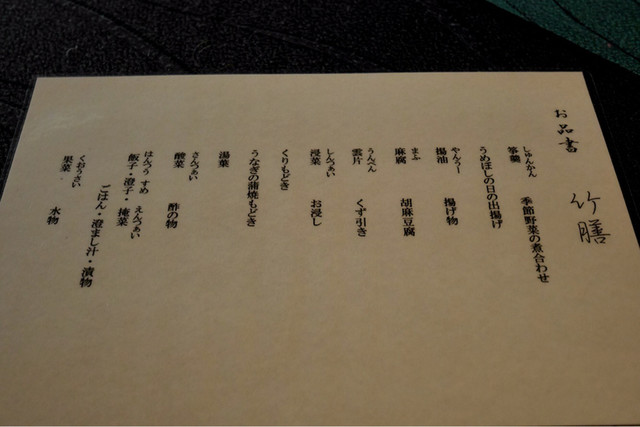 お品書
竹膳
しゅんかん
筝羹 季節野菜の煮合わせ
うめぼしの日の出揚げ
やんうー
揚油 揚げ物
まふ
麻腐 胡麻豆腐
うんぺん
雲片 くず引き
しんつぁい
浸菜 お浸し
くりもどき
うなぎの蒲焼もどき
湯葉
さんつぁい
酸菜 酢の物
はんつう すめ えんつぁい
飯子・澄子・掩菜
ごはん・澄まし汁・漬物
くおうさい
果菜 水物